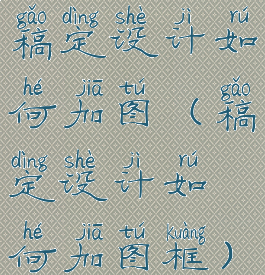 gǎo dìng shè jì rú
稿定设计如
hé jiā tú gǎo
何加图（稿
dìng shè jì rú
定设计如
hé jiā tú kuàng
何加图框）